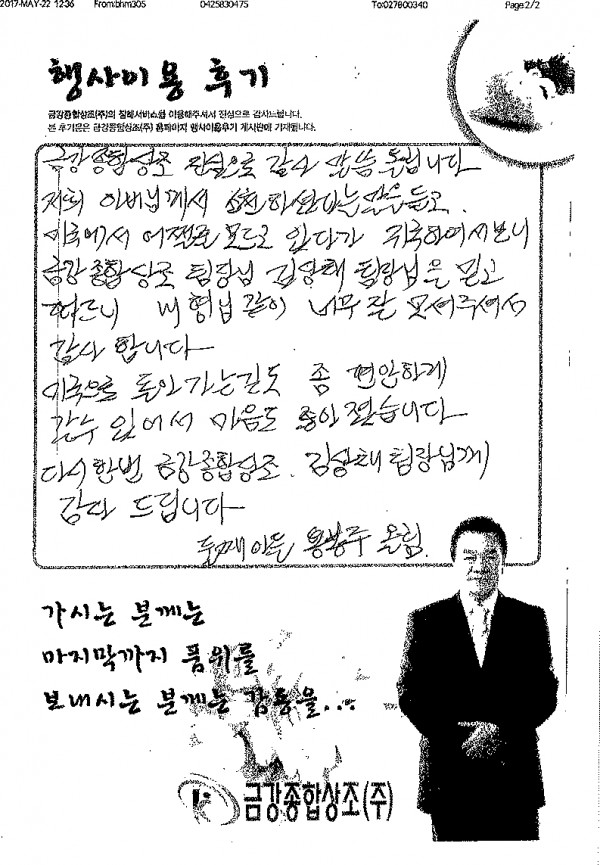 2017-MAY-22 12:36 From:bhm305 0425830475 To:027800340 Page:2/2
행사이용 후기
금강종합상조(주)의 장례서비스를 이용해주셔서 진심으로 감사드립니다.
본 후기문은 금강종합상조(주) 홈페이지 행사이용후기 게시판에 기재됩니다.
금강종합상조 진심으로 감사 말씀 올립니다
저희 아버님께서 하신다는 말을 듣고.
미국에서 어쩔줄 모르고 있다가 귀국하여서보니
금강종합상조 팀장님 김상태 팀장님을 믿고
따르니 내 형님 같이 너무 잘 모셔주셔서
감사 합니다
미국으로 돌아가는길도 좀 편안하게
갈수 있어서 마음도 놓입니다
다시한번 금강종합상조. 김상태 팀장님께
감사 드립니다
둘째아들 용봉주 올림.
가시는 분께는
마지막까지 품위를
보내시는 분께는 감동을...
금강종합상조(주)